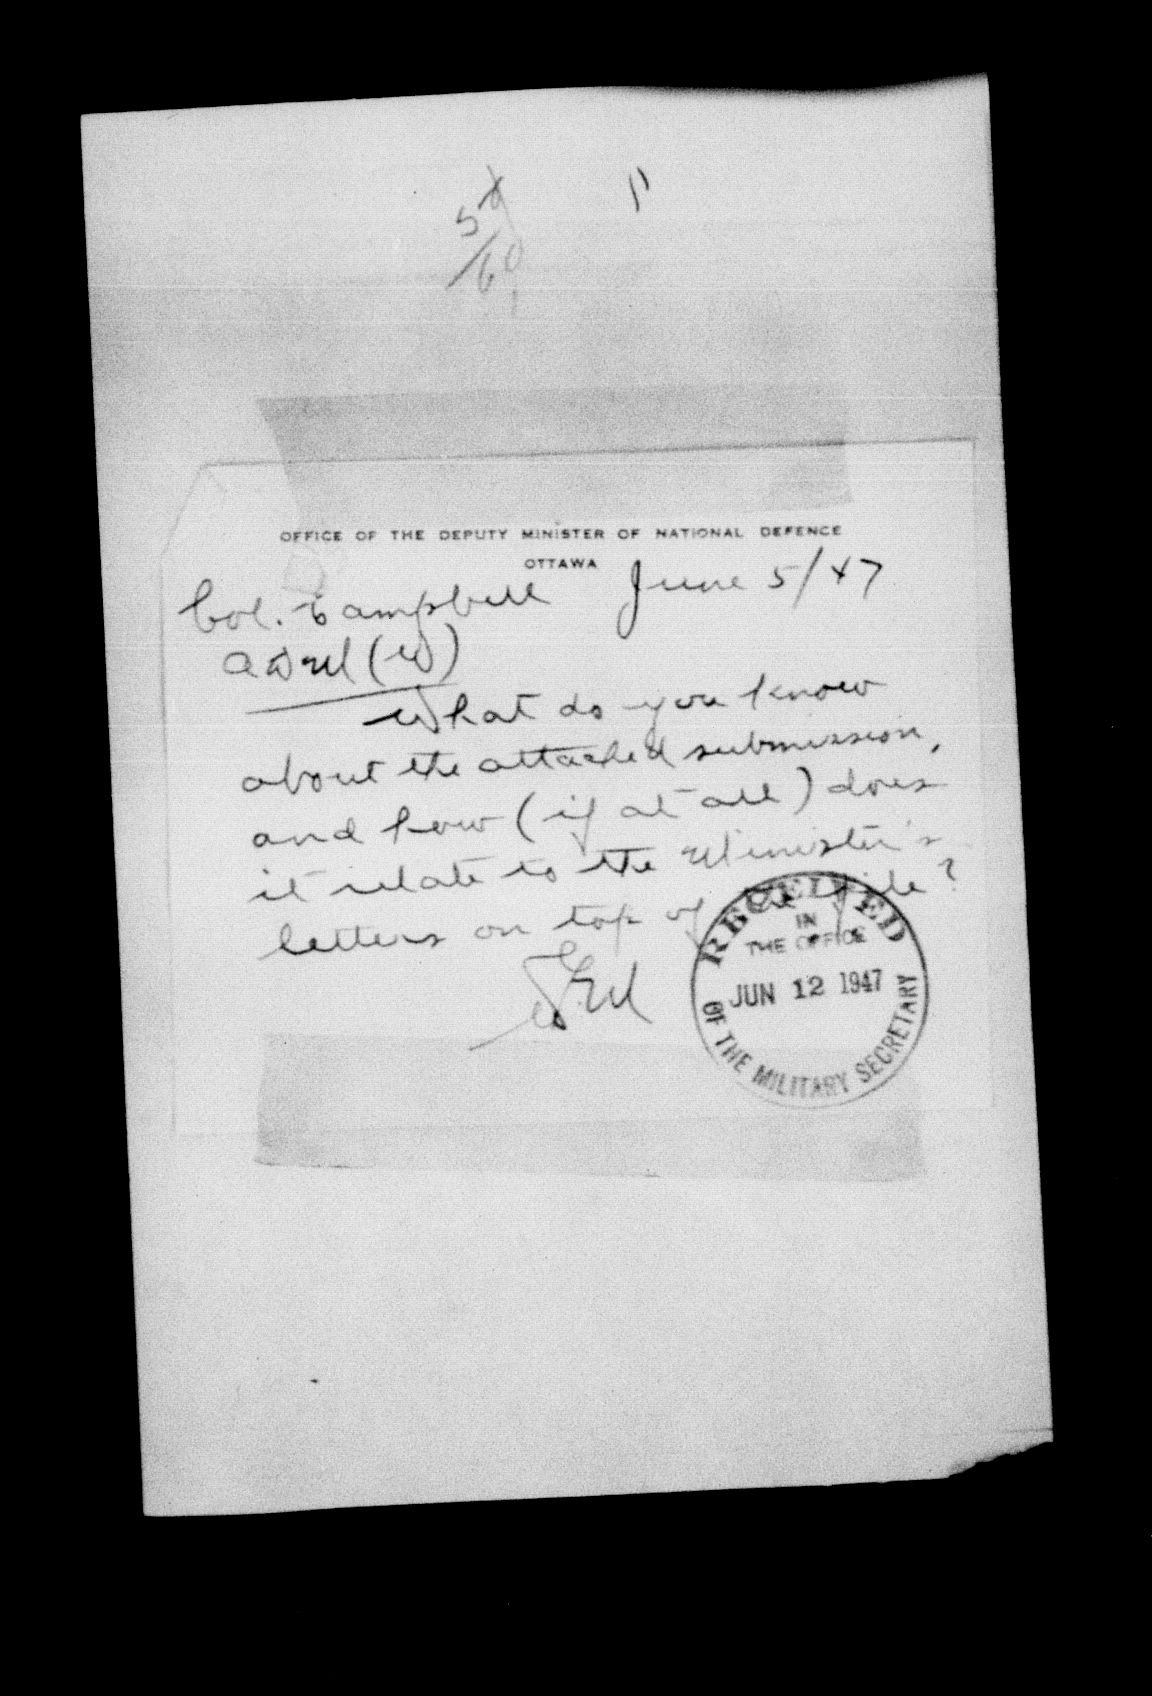 OFFICE OF THE DEPUTY MINISTER OF NATIONAL DEFENCE
OTTAWA
Col. Campbell June 5/47
ADM(W)
What do you know
about the attached submission,
and how (if at all) does
it relate to the Minister's
letters on top of the file?
RECEIVED
IN
THE OFFICE
JUN 12 1947
OF THE MILITARY SECRETARY